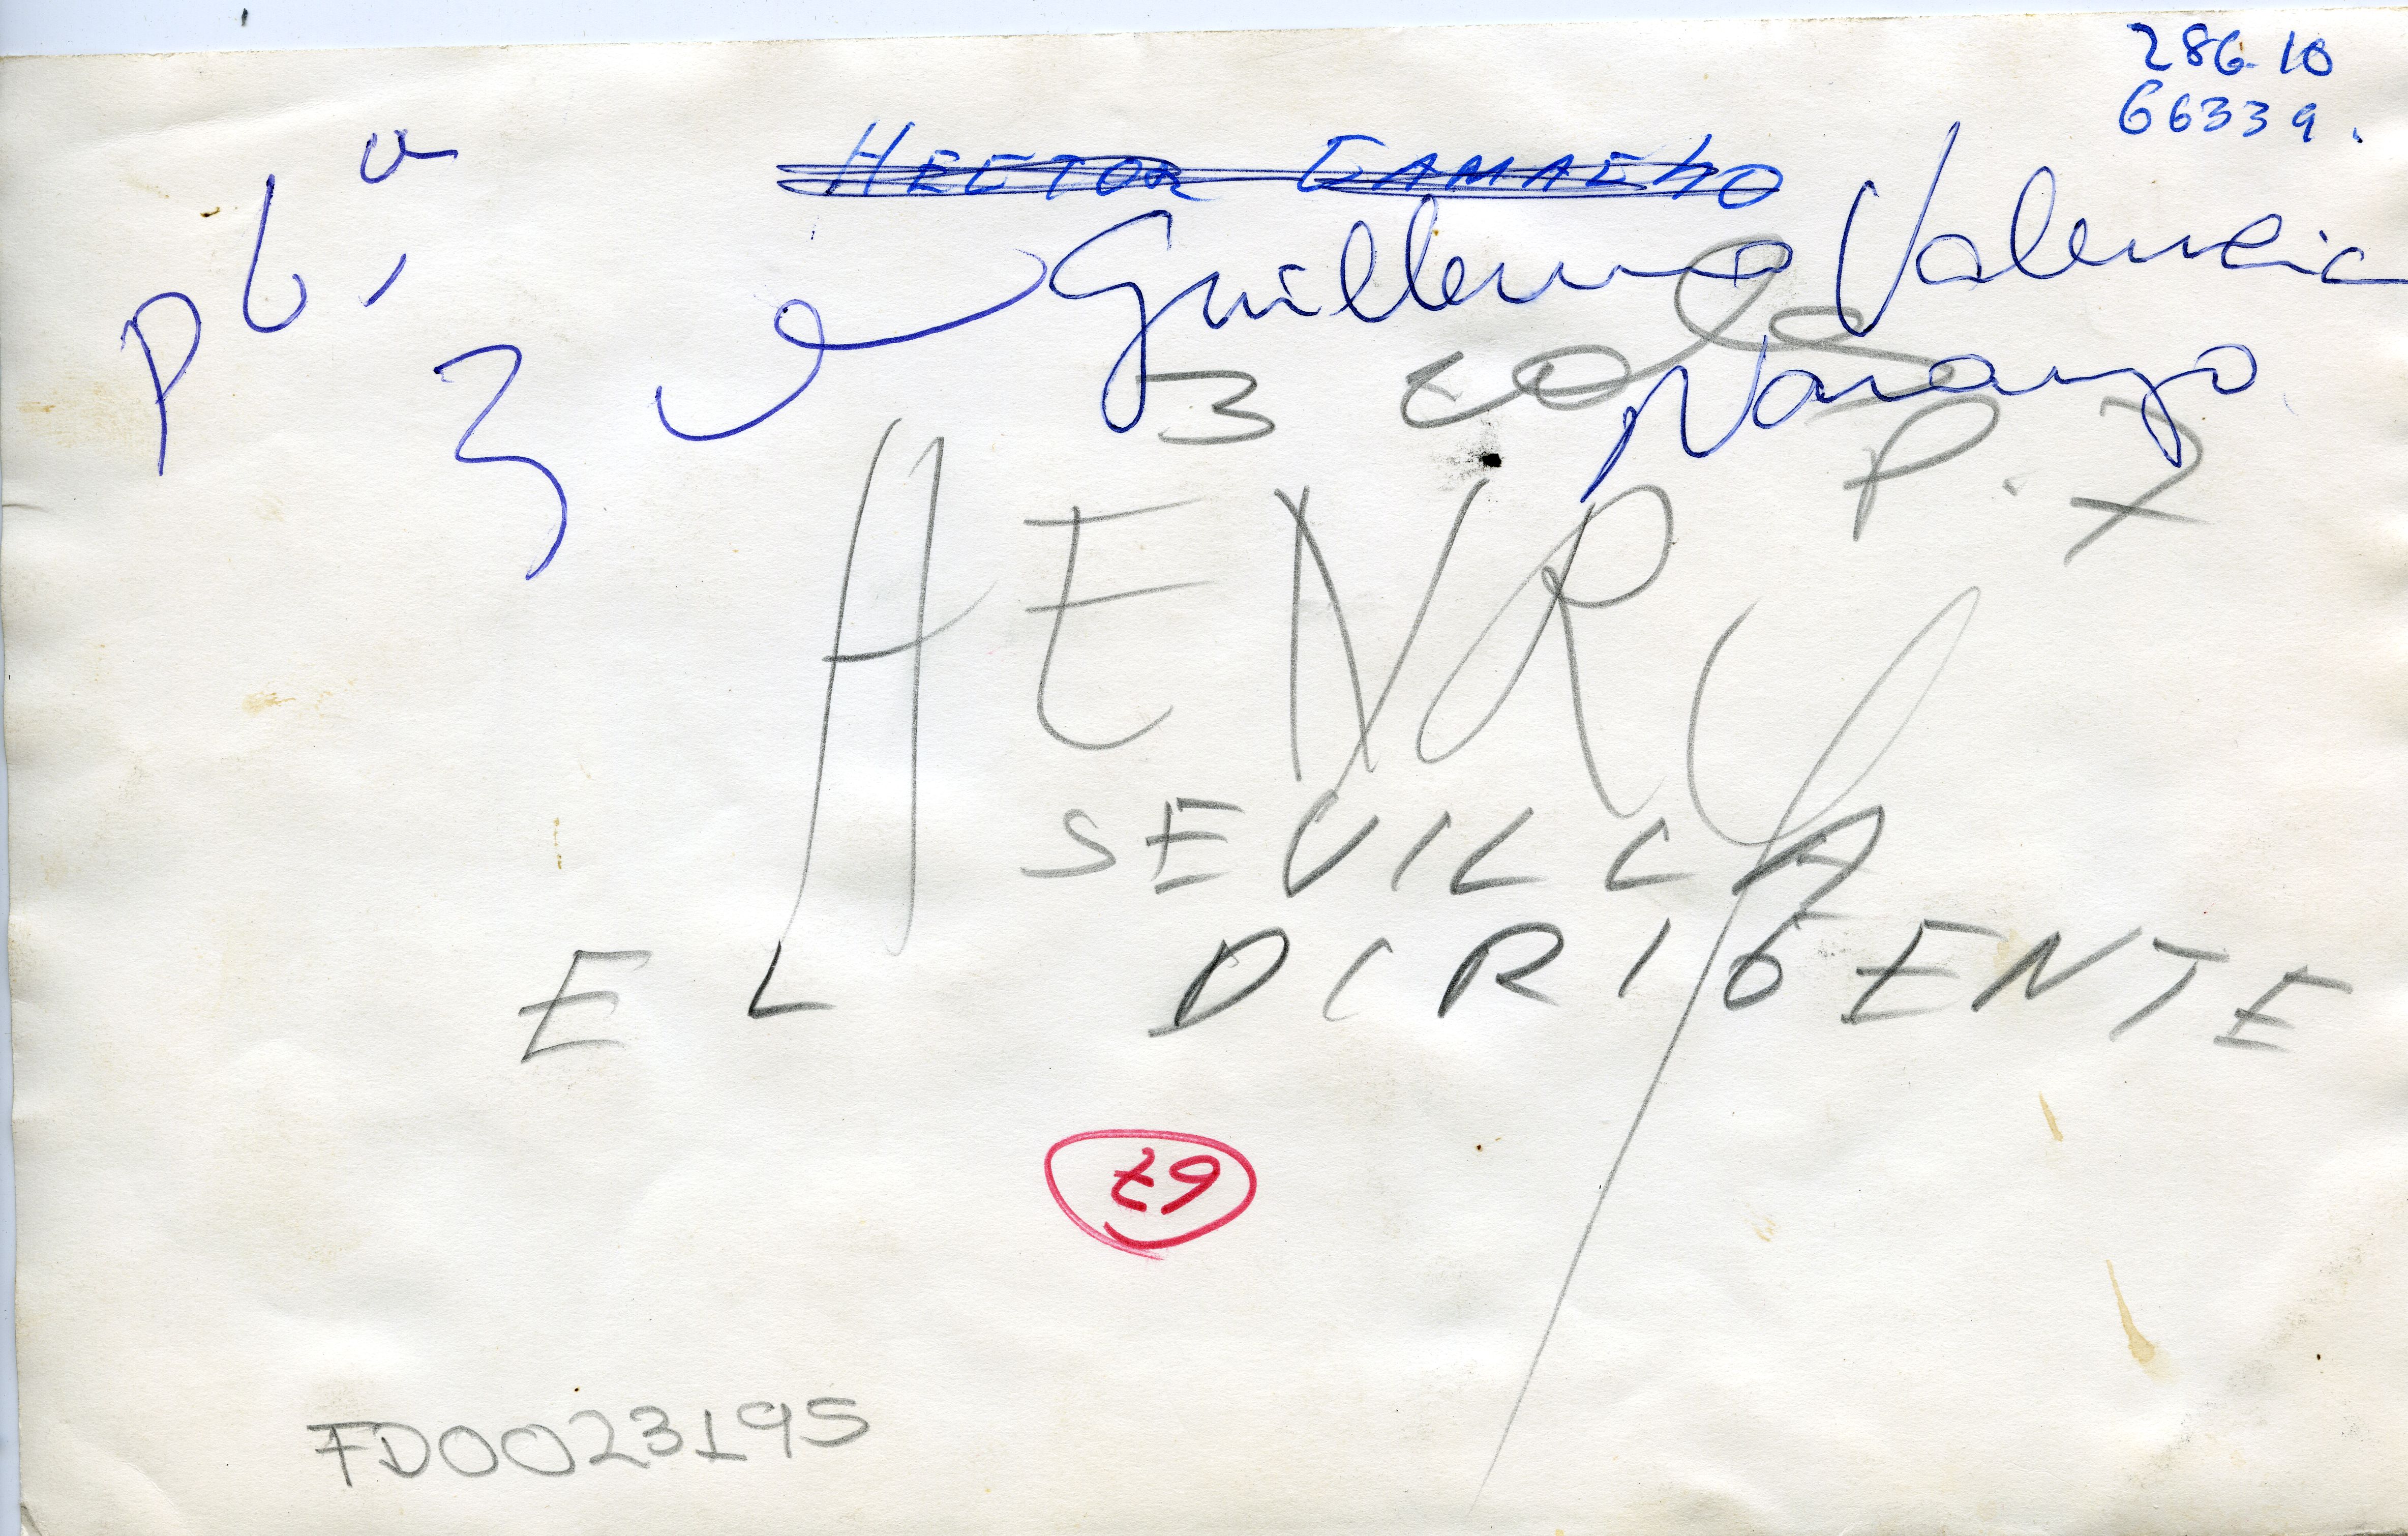 286-10
66339.
HECTOR CAMACHO
Guillermo Valencia
Naranjo
3 cols
P. 7
HENRY
SEVILLA
EL DIRIGENTE
79
FD0023195